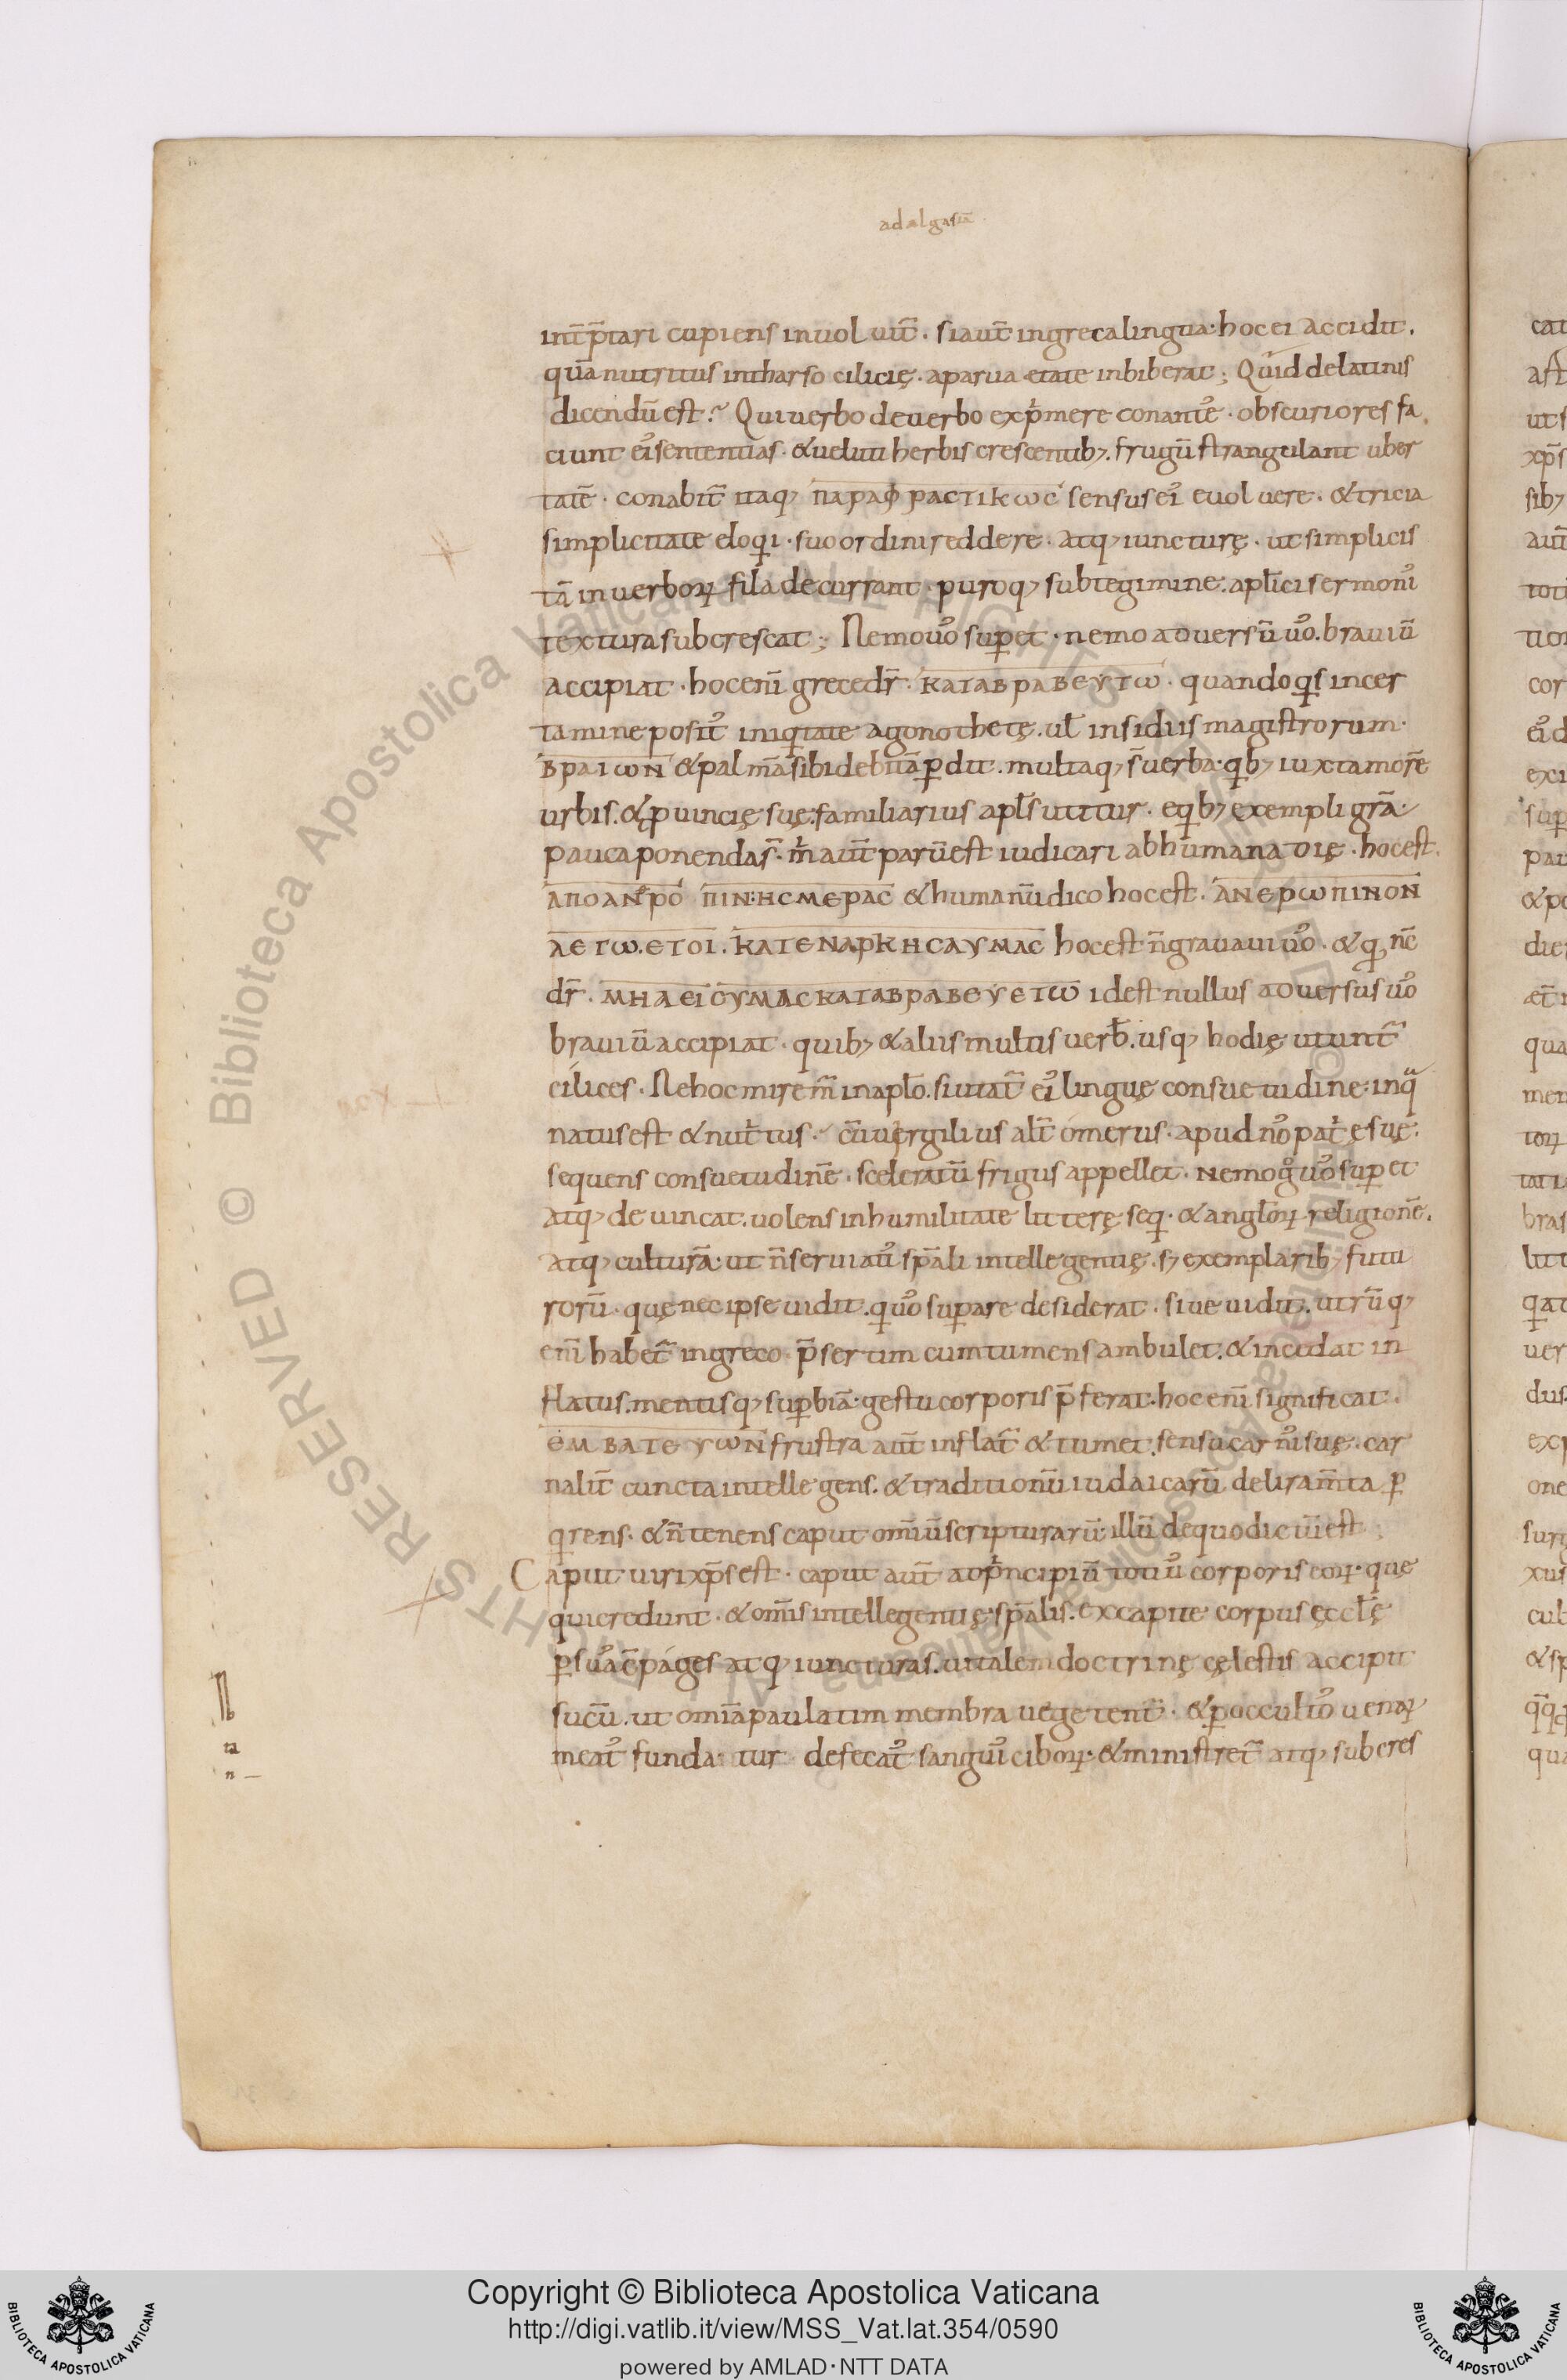 ad algasiā
int̄p̄tari cupiens inuoluit̄. si aut̄ in greca lingua hoc ei accidit.
quā nutritus in tharso cilicię. a parua etate inbiberat; Quid de latinis
dicendū est? Qui uerbo de uerbo exp̍mere conant᷒. obscuriores fa
ciunt ei᷒ sententias. & ueluti herbis crescentib; frugū strangulant uber
tatē. conabit̄ itaq; παραφραστικωc sensus ei᷒ euoluere. & tricia
simplicitate eloqi. suo ordini reddere. atq; iuncturę. ut simplicis
tā in uerboꝝ fila decurrant. puroq; subtegimine. apl̄ici sermoni᷒
textura subcrescat; Nemo uo᷒ suꝑet. nemo aduersū uo᷒. brauiū
accipiat. hoc eni᷒ grece dr̄. καταβραβεγτω. quando qis in cer
tamine posit᷒ iniqitate agonothetę. ul̄ insidiis magistrorum.
βραιων & palmā sibi debitā ꝑdit. multaq; s̄ uerba. qib; iuxta morē
urbis. & ꝓuincię suę. familiarius apl̄s utitur. e qib; exempli grā.
pauca ponenda s̄. m̍ aut̄ parū est iudicari ab humana dię. hoc est.
αποανρο πιν:ηcμεραc & humanū dico hoc est. ανερωπινον
λεγω. ετοι. κατεναρκηcαγμαc hoc est n̄ grauaui uo᷒. & qi nc̄
dr̄. μηλειcγμαcκαταβραβεγετω id est nullus aduersus uo᷒
brauiū accipiat. quib; & aliis multis uerb̄. usq; hodię utunt̄
cilices. Ne hoc mirem̄ in apl̄o. si utat̄ ei᷒ linguę consuetudine. in qa
natus est & nut̍tus. cū uergilius alt̄ omerus. apud no᷒ pat̍ę suę.
sequens consuetudinē. sceleratū frigus appellet. Nemo g̊ uo᷒ suꝑet
atq; deuincat. uolens in humilitate litterę seq. & angl̄oꝝ religionē.
atq; culturā. ut n̄ seruiat᷒ sp̄ali intellegentię. s; exemplarib; futu
rorū. quę nec ipse uidit. quo᷒ suꝑare desiderat. siue uidit. utrūq;
eni᷒ habet̄ in greco. p̄sertim cum tumens ambulet. & incedat in
flatus. mentisq; suꝑbiā. gestu corporis p̄ferat. hoc eni᷒ significat.
εμβατεγων frustra aut̄ inflat̄ & tumet. sensu carni᷒ suę. car
nalit̄ cuncta intellegens. & traditionū iudaicarū deliram̄ta ꝑ
qirens. & n̄ tenens caput omīū scripturarū. illū de quo dictū est;
Caput uiri xp̄s est. caput aut̄ adp̍ncipiū totiu᷒ corporis eoꝝ. quę
qui credunt. & omīs intellegentię sp̄alis. ex capite corpus ęccl̄ę
ꝑ sua᷒ c̄pages atq; iuncturas. uitalem doctrinę cęlestis accipit
sucū. ut omīa paulatim membra uegetent̄. & ꝑ occulto᷒ uenaꝝ
meat᷒ funda tur defecat᷒ sangui᷒ ciboꝝ. & ministret̄ atq; subcres
Copyright © Biblioteca Apostolica Vaticana
http://digi.vatlib.it/view/MSS_Vat.lat.354/0590
powered by AMLAD·NTT DATA